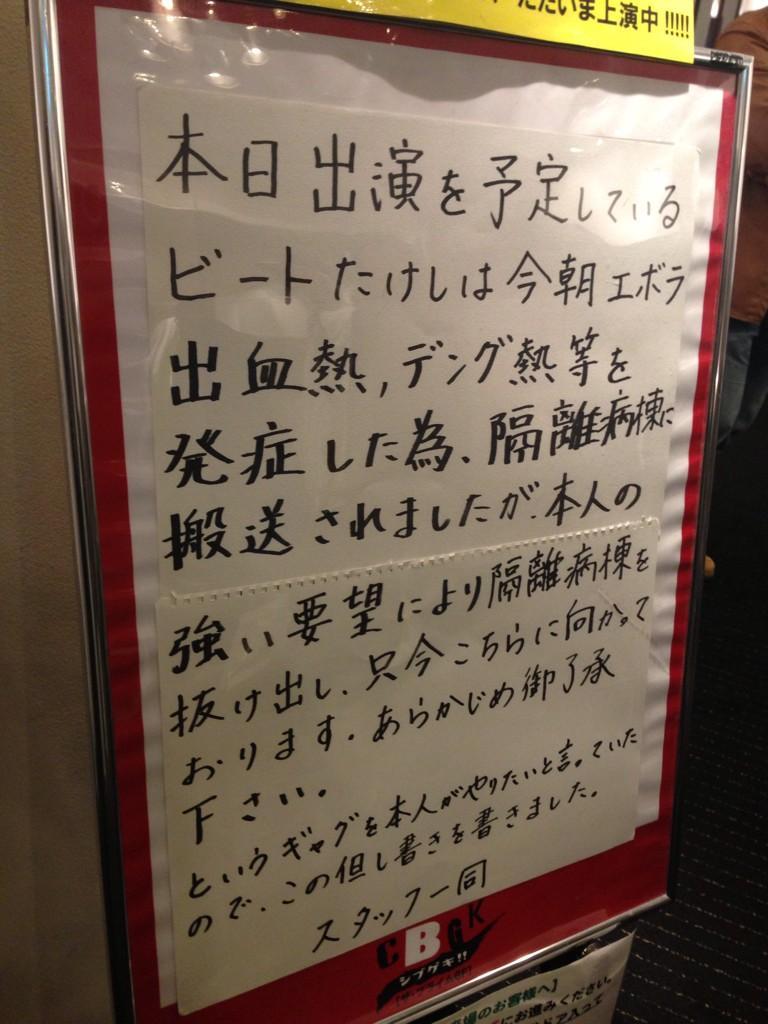 ただいま上演中!!!!!
本日出演を予定している
ビートたけしは今朝エボラ
出血熱,デング熱等を
発症した為、隔離病棟に
搬送されましたが、本人の
強い要望により隔離病棟を
抜け出し、只今こちらに向かって
おります。あらかじめ御了承
下さい。
というギャグを本人がやりたいと言っていた
ので、この但し書きを書きました。
スタッフ一同
CBGK
シブゲキ!!
場のお客様へ】
にお進みください。